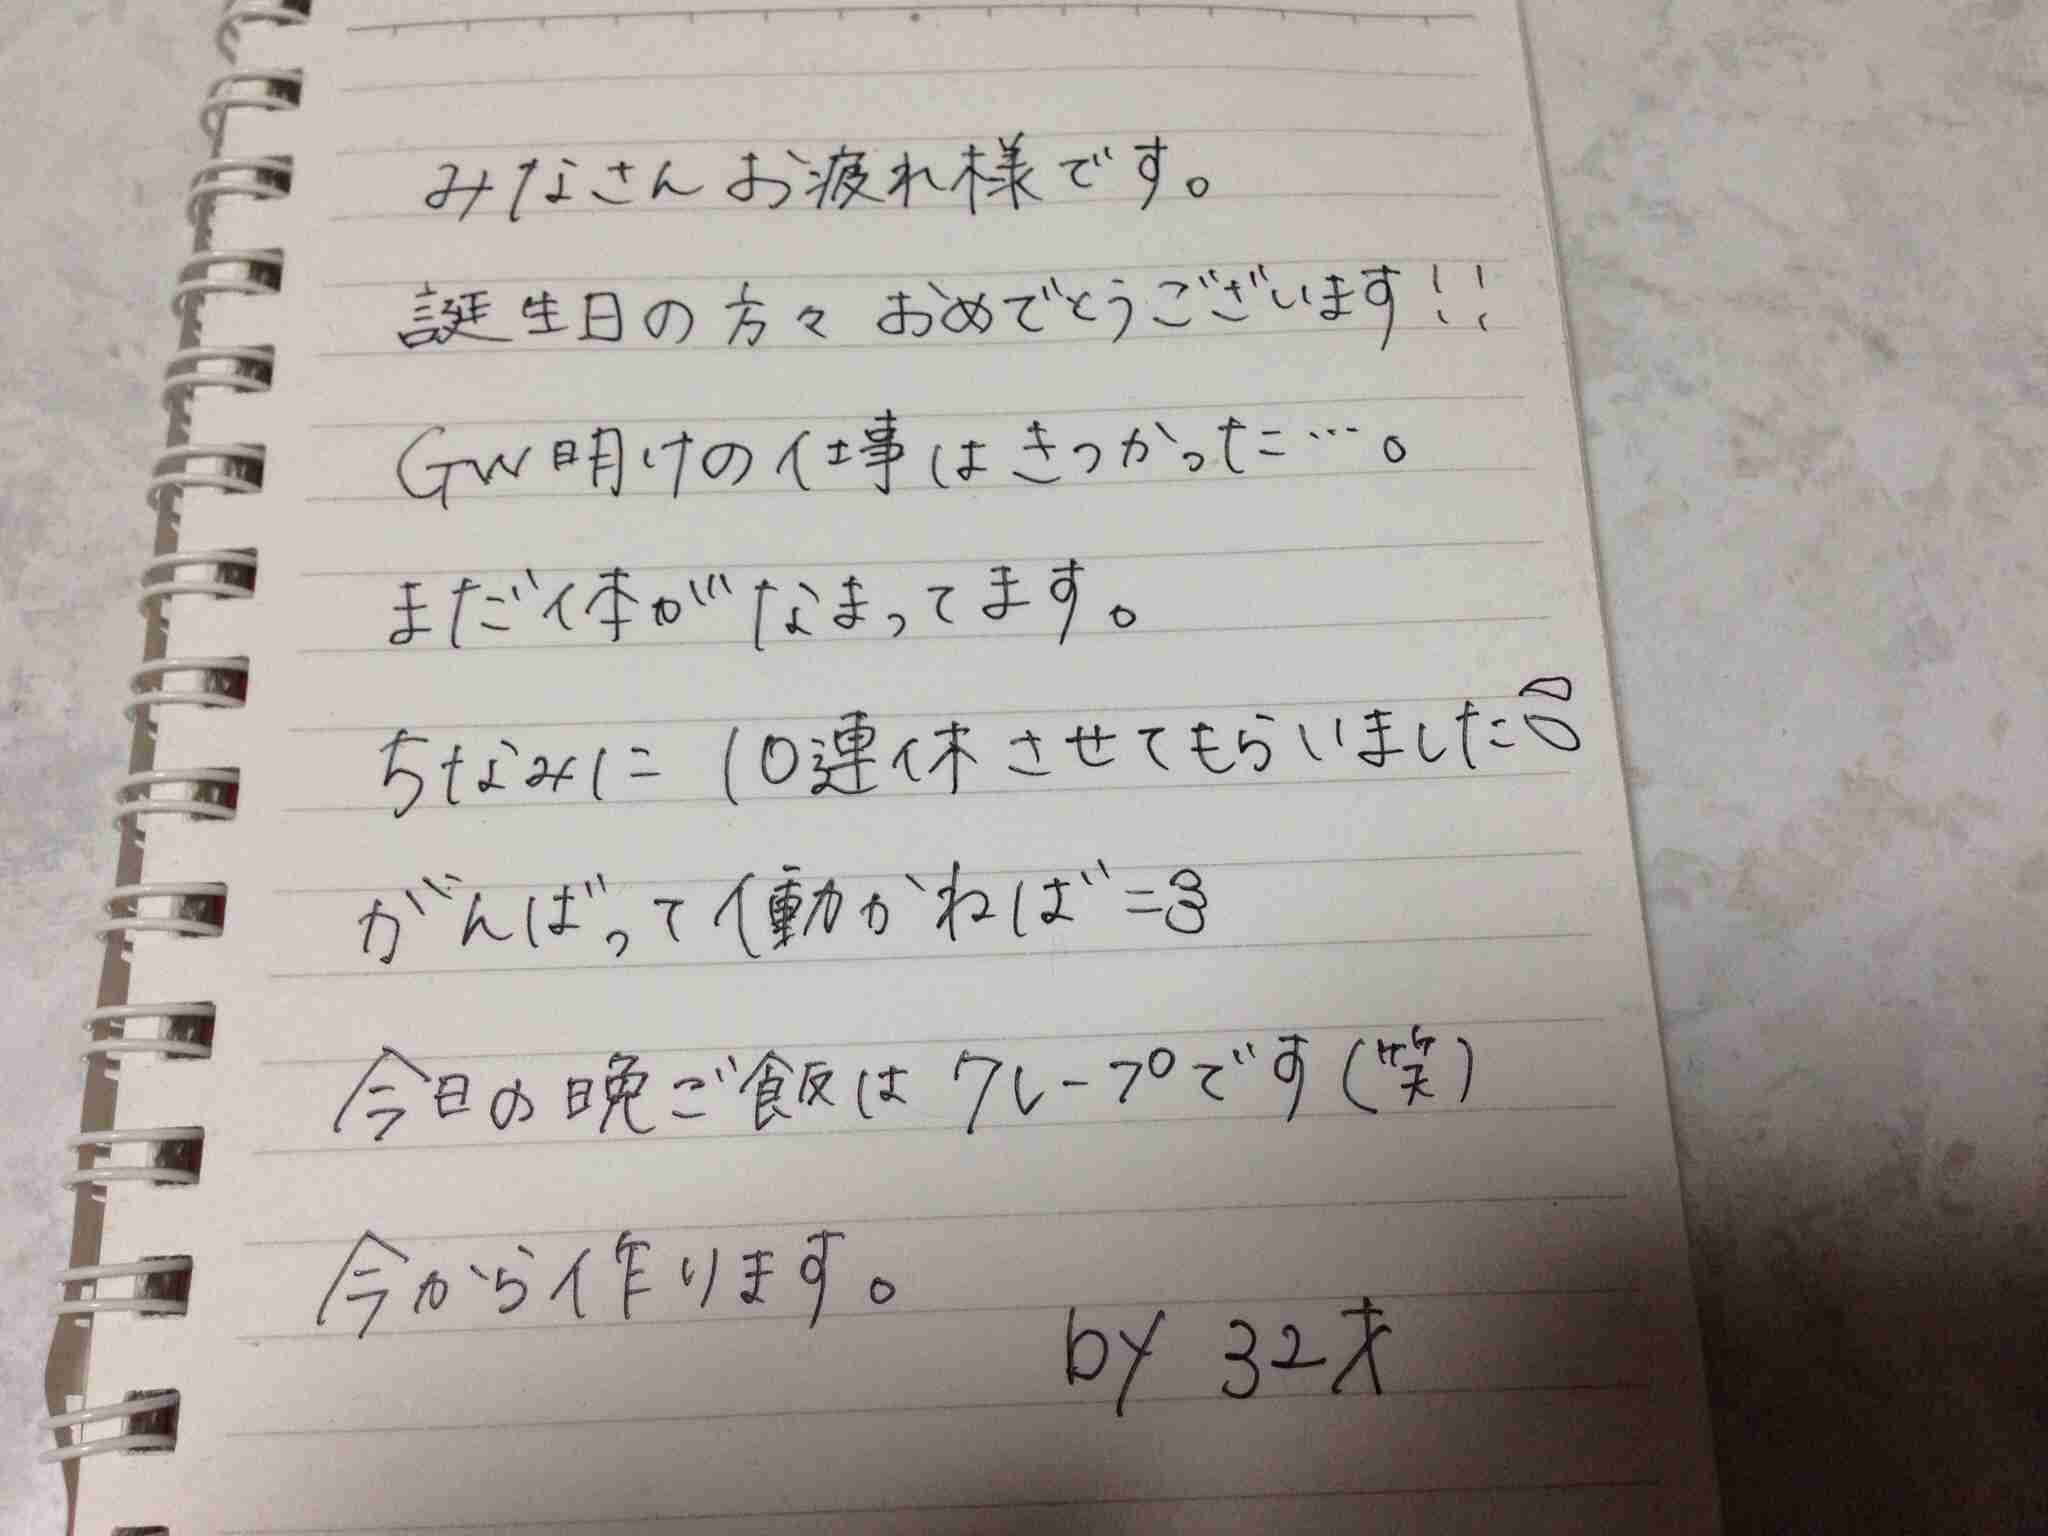 みなさんお疲れ様です。
誕生日の方々 おめでとうございます!!
GW明けの仕事はきつかった…。
まだ体がなまってます。
ちなみに 10連休させてもらいました
がんばって働かねば=3
今日の晩ご飯は クレープです(笑)
今から作ります。
by 32才